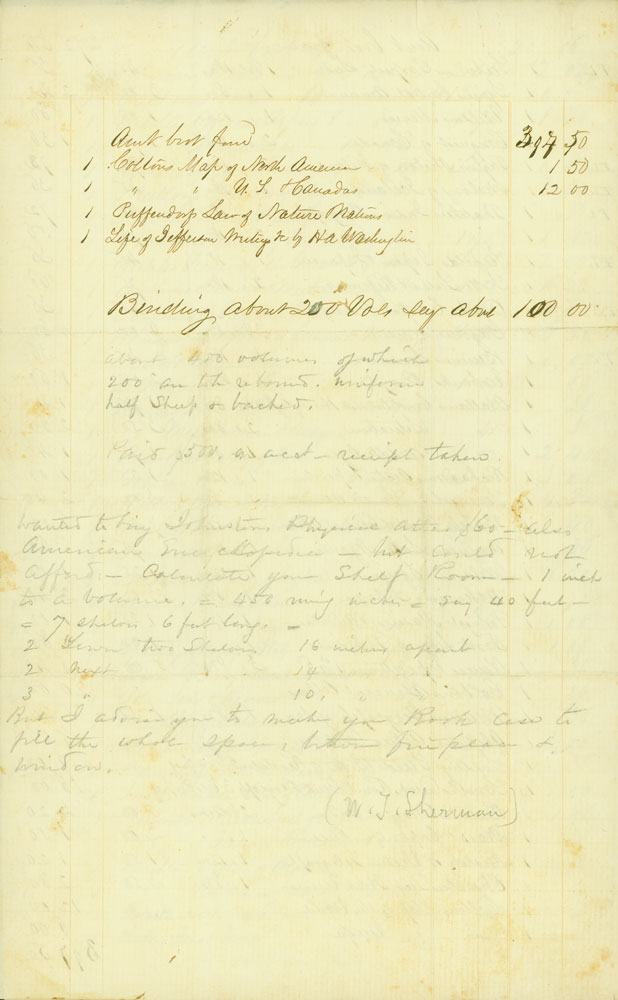 Amt brot forwd 397 50
1 Coltons Map of North America 1 50
1 " " U. S. & Canadas 12 00
1 Puffendorfs Law of Nature & Nations
1 Life of Jefferson Writings &c by H A Washington
Binding about 200 Vols say about 100 00
about 400 volumes of which
200 are to be rebound. uniform
half Sheep & backed.
Paid $500. on acct — receipt taken.
Wanted to buy Johnstons Physical Atlas $60 — also
American Encyclopedia — but could not
afford. — Calculate your Shelf Room — 1 inch
to a volume. = 450 running inches = say 40 feet —
= 7 shelves 6 feet long. —
2 Lower two Shelves 16 inches apart
2 Next 14 "
3 " 10. "
But I advise you to make your Book Case to
fill the whole space, between fireplace &
window.
(W. T. Sherman)